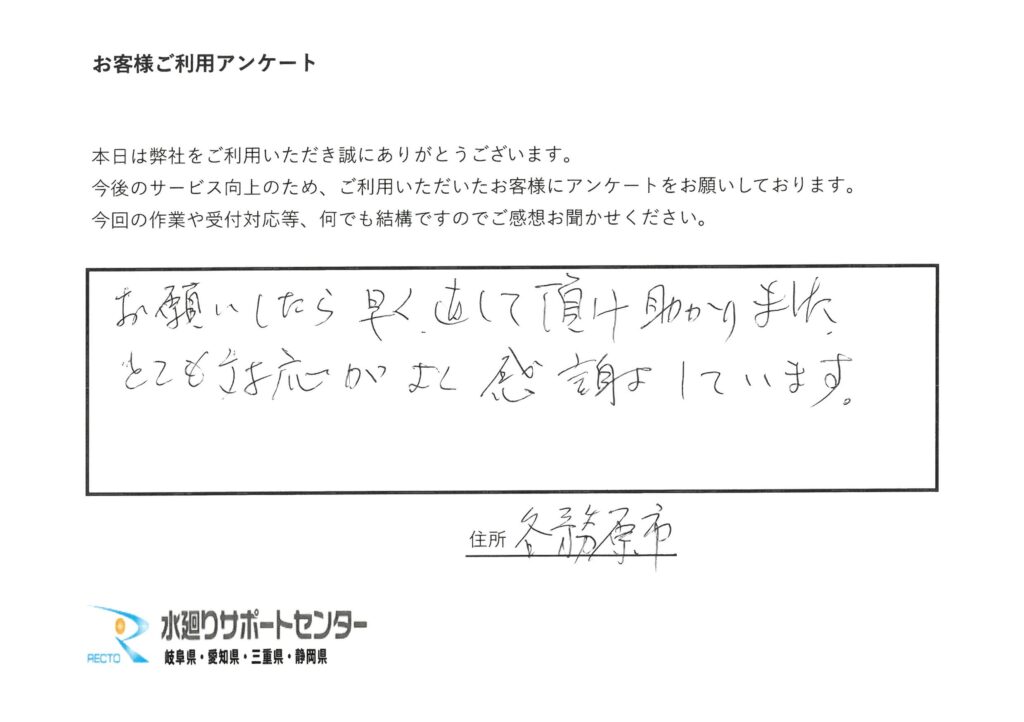 お客様ご利用アンケート
本日は弊社をご利用いただき誠にありがとうございます。
今後のサービス向上のため、ご利用いただいたお客様にアンケートをお願いしております。
今回の作業や受付対応等、何でも結構ですのでご感想お聞かせください。
お願いしたら早く直して頂け助かりました
とても対応がよく感謝しています。
住所 各務原市
RECTO 水廻りサポートセンター
岐阜県・愛知県・三重県・静岡県